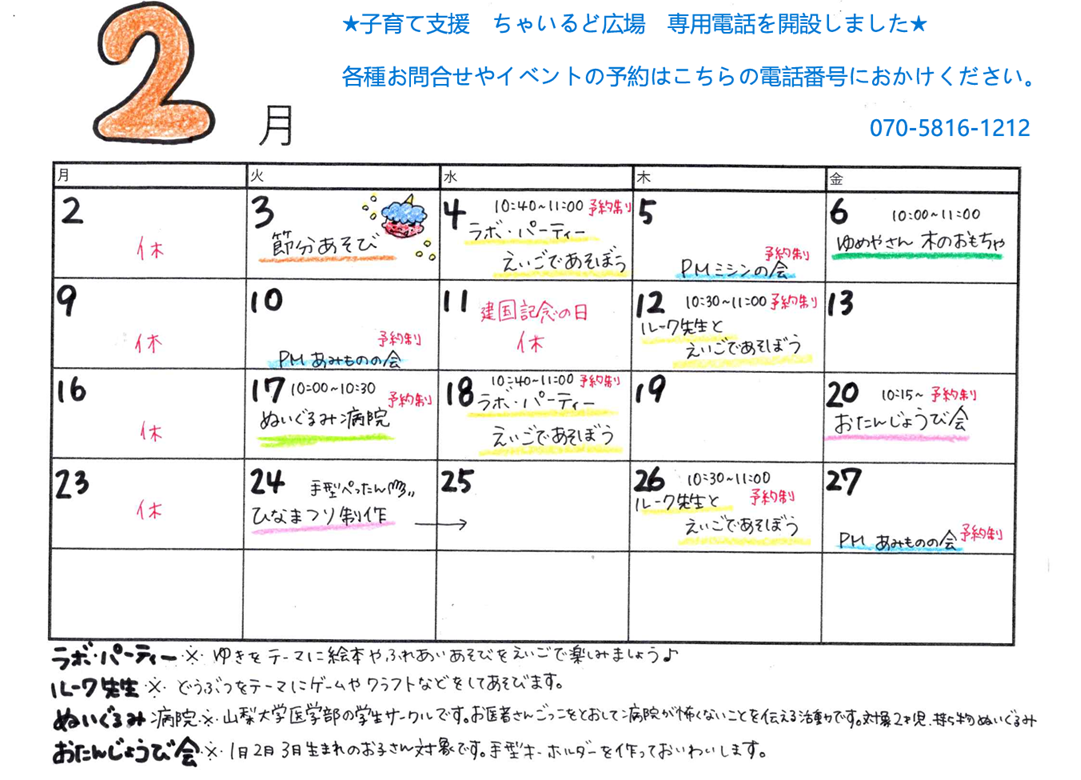 ★子育て支援　ちゃいるど広場　専用電話を開設しました★
各種お問合せやイベントの予約はこちらの電話番号におかけください。
070-5816-1212
2月
月 火 水 木 金
2
休
3
節分あそび
4 10:40~11:00 予約制
ラボ・パーティー
えいごであそぼう
5
予約制
PMミシンの会
6 10:00~11:00
ゆめやさん 木のおもちゃ
9
休
10
予約制
PM あみものの会
11 建国記念の日
休
12 10:30~11:00 予約制
ルーク先生と
えいごであそぼう
13
16
休
17 10:00~10:30
予約制
ぬいぐるみ病院
18 10:40~11:00 予約制
ラボ・パーティー
えいごであそぼう
19
20 10:15~ 予約制
おたんじょうび会
23
休
24 手型ぺったん
ひなまつり制作 →
25
26 10:30~11:00
予約制
ルーク先生と
えいごであそぼう
27
予約制
PM あみものの会
ラボ・パーティー ※ ゆきをテーマに絵本やふれあいあそびをえいごで楽しみましょう♪
ルーク先生 ※ どうぶつをテーマにゲームやクラフトなどをしてあそびます。
ぬいぐるみ病院 ※ 山梨大学医学部の学生サークルです。お医者さんごっこをとおして病院が怖くないことを伝える活動です。対象2才児、持ち物ぬいぐるみ
おたんじょうび会 ※ 1月2月3月生まれのお子さん対象です。手型キーホルダーを作っておいわいします。